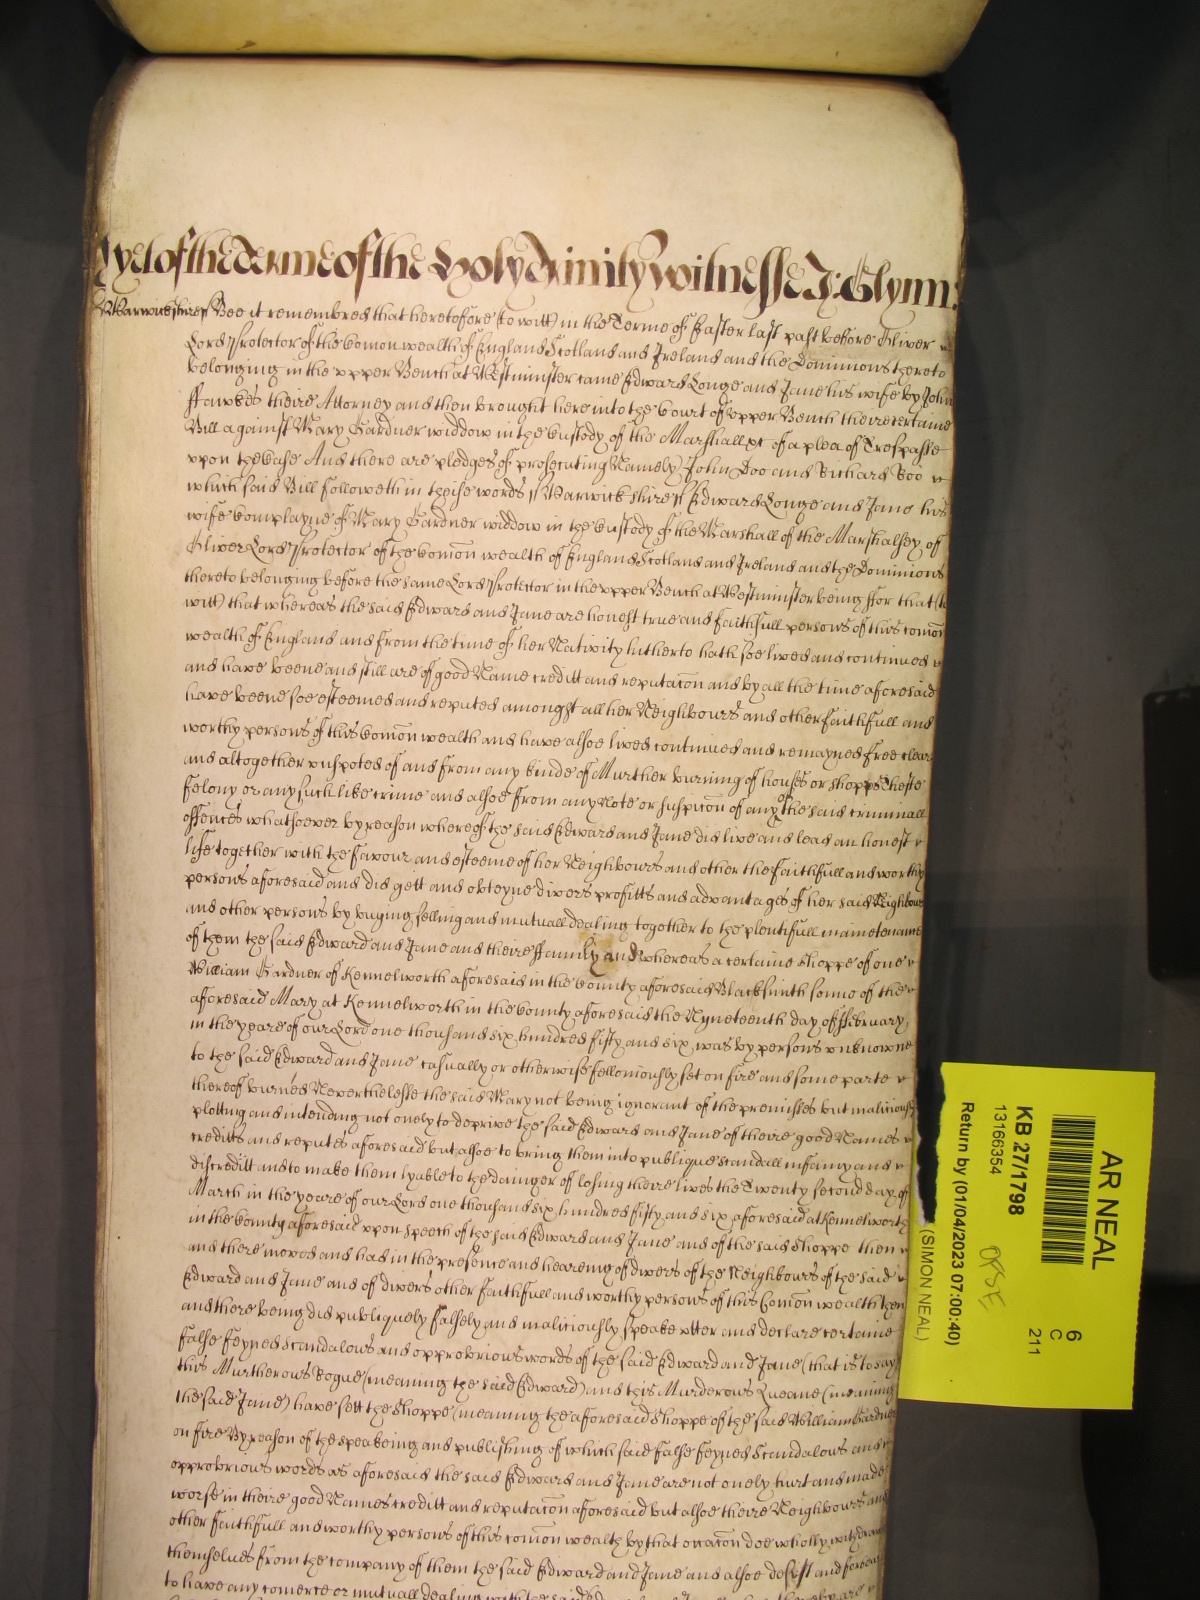 Yet of the Terme of the Holy Trinity Witnesse J: Glynn:
Warwickshire ss Bee it remembred that heretofore (to witt) in the Terme of Easter last past before Oliver
Lord Protector of the Comon wealth of England Scotland and Ireland and the Dominions thereto
belonging in the upper Bench at Westminster came Edward Longe and Jane his wife by John
ffawkes theire Attorney and then brought here into the Court of upper Bench theire certaine
Bill against Mary Gardner widdow in the Custody of the Marshall &c of a plea of Trespasse
upon the Case And there are pledges of prosecuting Namely John Doo and Richard Roo
which said Bill followeth in theise words ss Warwickshire ss Edward Longe and Jane his
wife Complayne of Mary Gardner widdow in the Custody of the Marshall of the Marshalsey of
Oliver Lord Protector of the Comon wealth of England Scotland and Ireland and the Dominions
thereto belonging before the same Lord Protector in the upper Bench at Westminster being ffor that (to
witt) that whereas the said Edward and Jane are honest true and faithfull persons of this comon
wealth of England and from the time of her Nativity hitherto hath soe lived and continued
and have beene and still are of good Name creditt and reputacon and by all the time aforesaid
have beene soe esteemed and reputed amongst all her Neighbours and other faithfull and
worthy persons of this Comon wealth and have alsoe lived continued and remayned free clear
and altogether unspoted of and from any kinde of Murther burning of houses or shopps Thefte
felony or any such like crime and alsoe from any Note or suspicon of any of the said criminall
offences whatsoever by reason whereof the said Edward and Jane did live and lead an honest
life together with the favour and esteeme of her Neighbours and other the faithfull and worthy
persons aforesaid and did gett and obteyne divers profitts and advantages of her said Neighbours
and other persons by buying selling and mutuall dealing together to the plentifull maintenance
of them the said Edward and Jane and theire ffamily and whereas a certaine shoppe of one
William Gardner of Kennelworth aforesaid in the County aforesaid Blacksmith sonne of the
aforesaid Mary at Kennelworth in the County aforesaid the Nyneteenth day of ffebruary
in the yeare of our Lord one thousand six hundred fifty and six was by persons unknowne
to the said Edward and Jane casually or otherwise felloniously set on fire and some parte
thereof burned Neverthelesse the said Mary not being ignorant of the premisses but maliciously
plotting and intending not onely to deprive the said Edward and Jane of theire good Names
creditts and reputes aforesaid but alsoe to bring them into publique scandall infamy and
discreditt and to make them lyable to the dainger of losing theire lives the Twenty second day of
March in the yeare of our Lord one thousand six hundred fifty and six aforesaid at Kennelworth
in the County aforesaid upon speech of the said Edward and Jane and of the said shoppe then
and there moved and had in the presence and heareing of divers of the Neighbours of the said
Edward and Jane and of divers other faithfull and worthy persons of this Comon wealth then
and there being did publiquely falsely and maliciously speake utter and declare certaine
false feyned scandalous and opprobrious words of the said Edward and Jane (that is to say)
this Murtherous Rogue (meaning the said Edward) and this Murderous Queane (meaning
the said Jane) have sett the shoppe (meaning the aforesaid shoppe of the said William Gardner
on fire By reason of the speakeing and publishing of which said false feyned scandalous and
opprobrious words as aforesaid the said Edward and Jane are not onely hurt and made
worse in theire good Names creditt and reputacon aforesaid but alsoe theire Neighbours and
other faithfull and worthy persons of this comon wealth by that occacon doe wholly withdraw
themselves from the company of them the said Edward and Jane and alsoe desist and forbeare
to have any comerce or mutuall dealing with the said
AR NEAL
6
C
211
KB 27/1798
13166354
Return by (01/04/2023 07:00:40)
(SIMON NEAL)